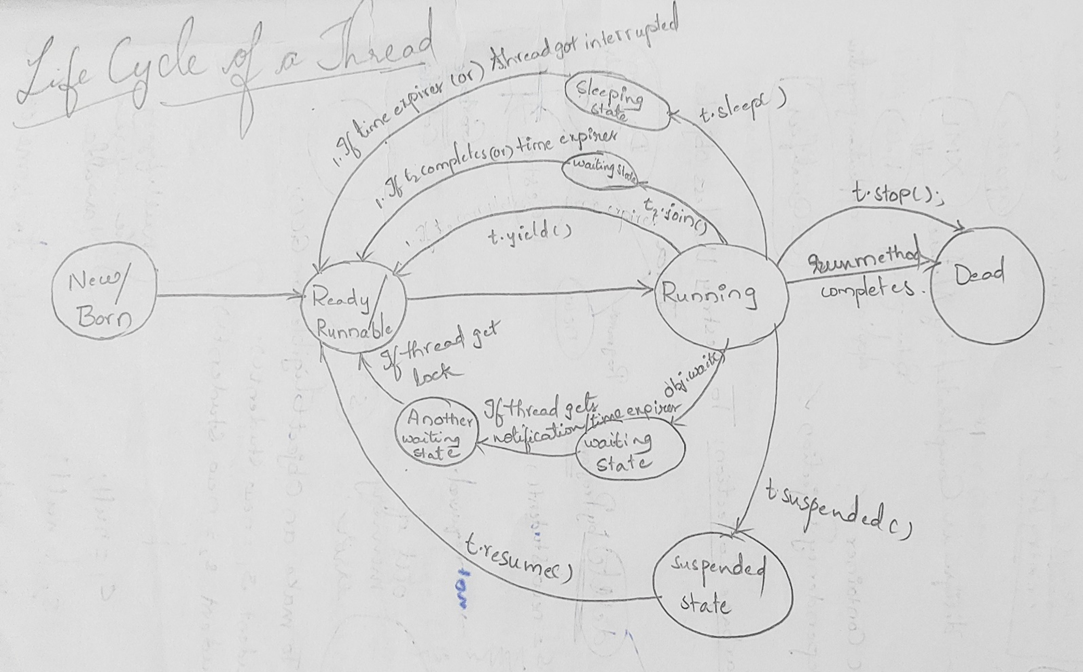 Life Cycle of a Thread
1. If time expires (or) thread got interrupted
Sleeping
state
t.sleep()
1. If t2 completes (or) time expires
waiting state
t2.join()
t.yield()
t.stop();
New/
Born
Ready/
Runnable
Running
runmethod
completes.
Dead
If thread get
lock
obj.wait()
Another
waiting
state
If thread gets
notification/time expires
waiting
state
t.suspended()
t.resume()
suspended
state